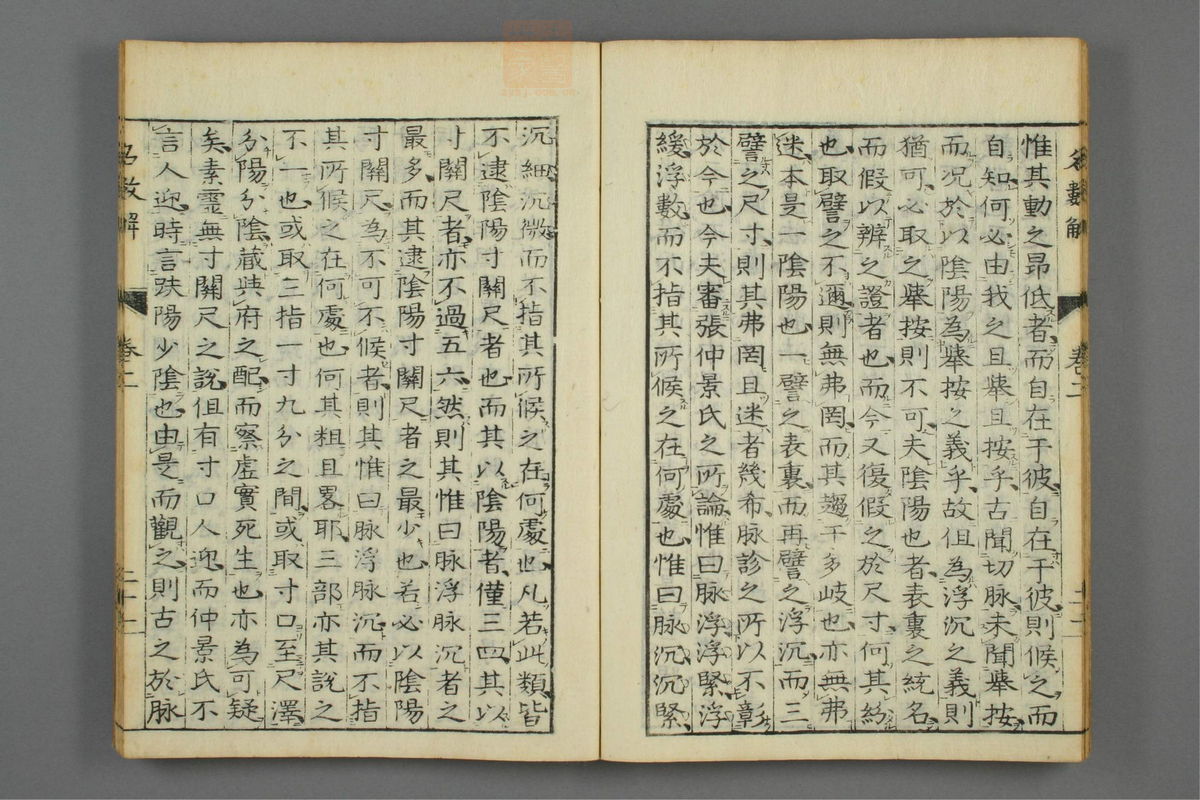 惟其動之昂低者而自在于彼自在于彼則候之而
自知何必由我之且舉且按乎古聞切脉未聞舉按
而况於以陰陽為舉按之義乎故但為浮沉之義則
猶可必取之舉按則不可夫陰陽也者表裏之統名
而假以辨之證者也而今又復假之於尺寸何其紛
也取譬之不邇則無弗罔而其趨于多岐也亦無弗
迷本是一陰陽也一譬之表裏而再譬之浮沉而三
譬之尺寸則其弗罔且迷者幾希脉診之所以不彰
於今也今夫審張仲景氏之所論惟曰脉浮浮緊浮
緩浮數而不指其所候之在何處也惟曰脉沉沉緊
沉細沉微而不指其所候之在何處也凡若此類皆
不逮陰陽寸關尺者也而其以陰陽者僅三四其以
寸關尺者亦不過五六然則其惟曰脉浮脉沉者之
最多而其逮陰陽寸關尺者之最少也若必以陰陽
寸關尺為不可不候者則其惟曰脉浮脉沉而不指
其所候之在何處也何其粗且畧耶三部亦其說之
不一也或取三指一寸九分之間或取寸口至尺澤
分陽分陰藏與府之配而察虛實死生也亦為可疑
矣素靈無寸關尺之說但有寸口人迎而仲景氏不
言人迎時言趺陽少陰也由是而觀之則古之於脉
名數解
卷二